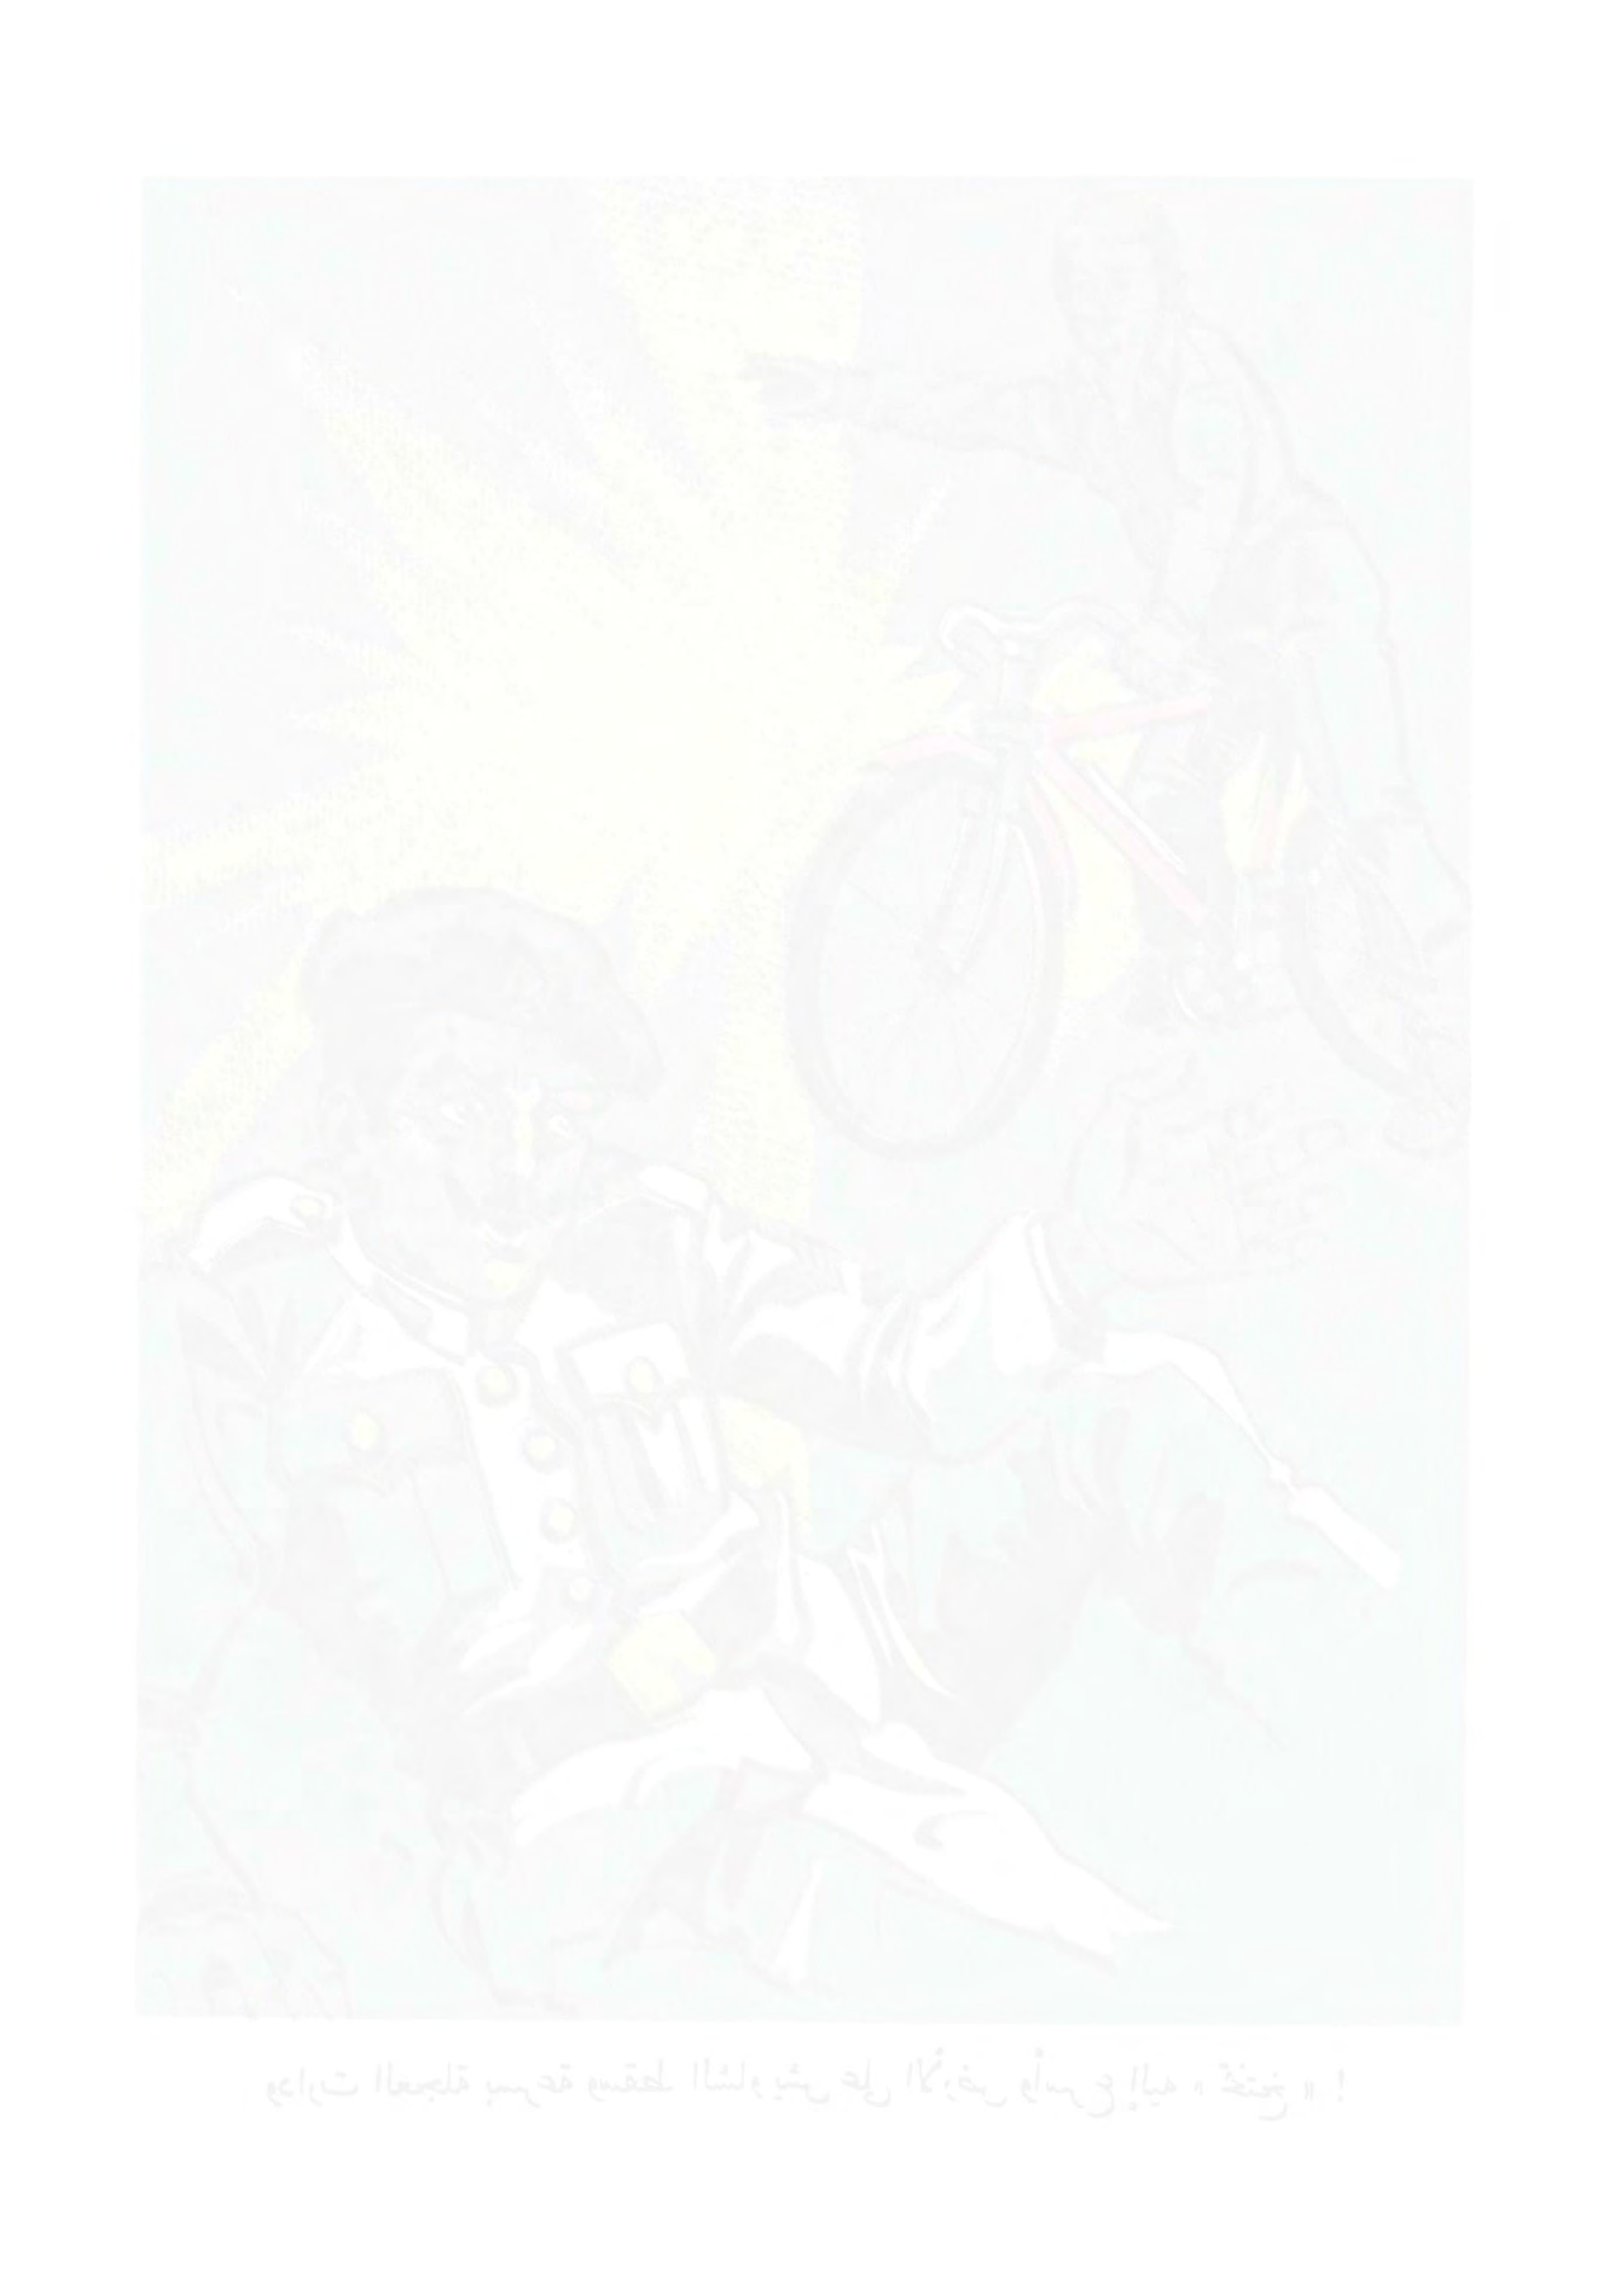 ودارت العجلة بسرعة وسقط الشاويش على الأرض وأسرع إليه « تختخ » !